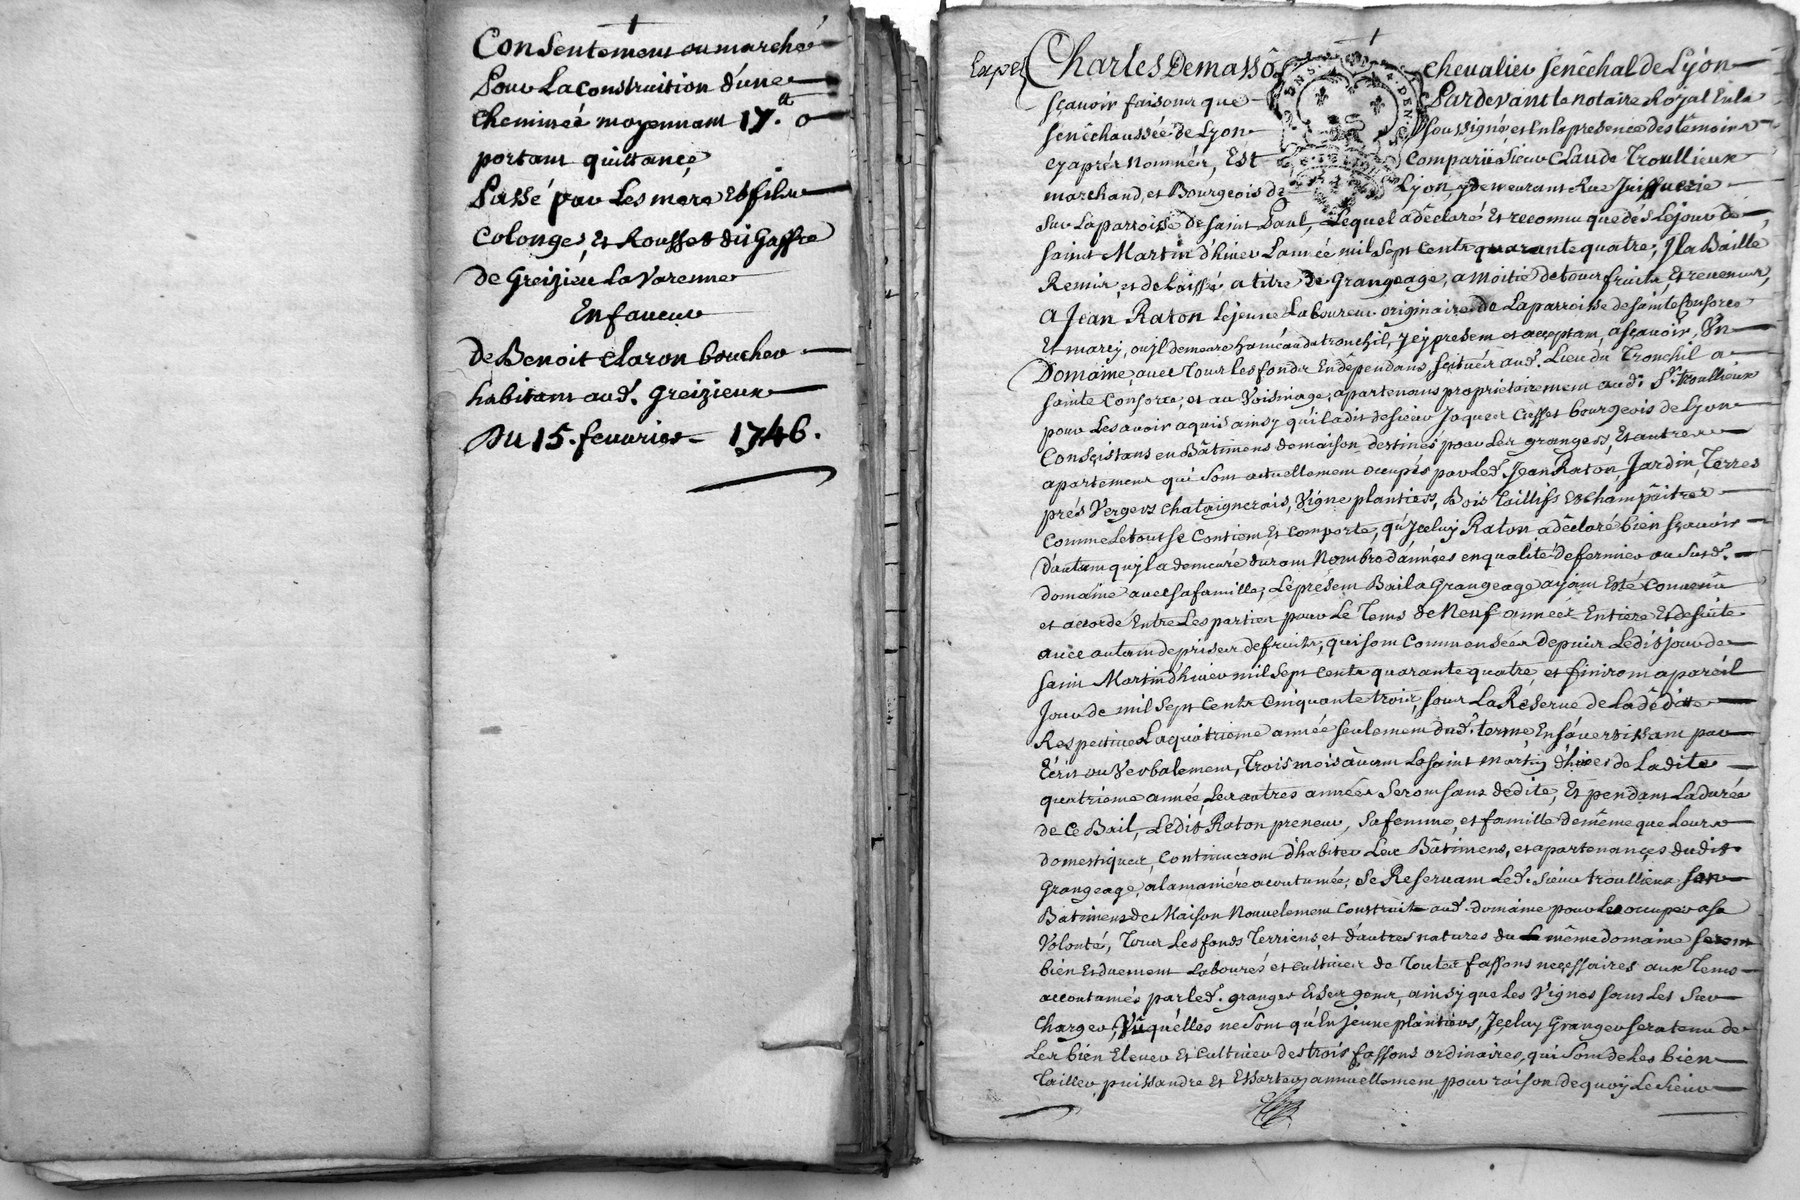 Consentement ou marché
Pour La construction d'une
cheminée moyennant 17.tt
portant quittance
Passé par Les mere Et fils
Colonges, Et Rousset dit Gaffre
de Greizieu La Varenne
En faueur
De Benoit claron boucher
habitant aud. Greizieux
Du 15. feurier 1746.
Exped
Charles Demassô chevalier senêchal de Lyon
sçauoir faisons que Pardevant le notaire Royal En la
senêchaussée de Lyon soussigné, et En la presence des têmoins
cy aprés nommés, Est comparû Sieur Claude Troullieux
marchand, et Bourgeois de Lyon, y demeurant Rue Juifuerie
sur La parroisse de saint Paul, Lequel a dêclaré Et reconnu que dés Le jour de
saint Martin d'hiuer L'année mil sept cents quarante quatre, Il a Baillé
Remis, et delaissé a titre de Grangeage, a moitié de tous fruits, Et reuenus,
A Jean Raton Le jeune Laboureur originaire de La parroisse de sainte Consorce
Et marcy, ou il demeure hameau du tronchil, Icy present et acceptant, asçauoir, Un
Domaine, auec Tous Les fonds En dêpendans, scitués aud. Lieu du Tronchil a
sainte Consorce, et au Voisinage, apartenans proprietairement aud. Sr. troullieux
pour Les auoir aquis ainsy qu'il a dit de sieur Jaques Cusset bourgeois de Lyon
Consistans en Bâtimens de maison destinés pour Les grangers, Et autres
apartemens qui sont actuellement occupés par Led. Jean Raton, Jardin, Terres
prés Vergers chataignerais, Vigne plantiers, Bois Taillifs Et champêitres
comme Le tout se Contient Et comporte, qu'Iceluy Raton a dêclaré bien sçauoir
d'autant qu'il a demeuré durant Nombre d'années en qualité de fermier au susd.
domaine auec sa famille; Le présent Bail a Grangeage ayant Esté Conuenû
et accordé Entre Les parties pour Le Tems de Neuf années Entiere Et de suite
auec autant de prises de fruits, qui sont commensées depuis Le dit jour de
saint Martin d'hiuer mil sept cents quarante quatre, et finiront a pareil
Jour de mil sept cents cinquante trois, sous La Reserue de La dêdite
Respectiue La quatrieme année seulement dud. terme, En s'auertissant par
Ecrit ou Verbalement, Trois mois auant La saint martin d'hiuer de La dite
quatrieme année, Les autres années seront sans dedite, Et pendant La durée
de Ce Bail, Le dit Raton preneur, sa femme, et famille de même que Leurs
domestiques, continueront d'habiter Les Bâtimens, et apartenances dudit
Grangeage, a la maniére acoutumée, se Reseruant Led. sieur troullieux Son
Batiment de Maison Nouuelement construit aud. domaine pour Les occuper a sa
Volonté, Tous Les fonds Terriens, et d'autres natures du même domaine seront
bien Et duement Labourés et cultiués de Toutes fassons necessaires aux Tems
accoutumés par Led. granger Et ses gens, ainsy que Les Vignes sans Les sur
charger, Vû qu'elles ne sont qu'En jeune plantiers, Iceluy Granger sera tenu de
Les bien Eleuer Et Cultiuer des trois fassons ordinaires, qui sont de Les bien
Tailler, puissandre Et Essarter annuellement, pour raison de quoy Le sieur